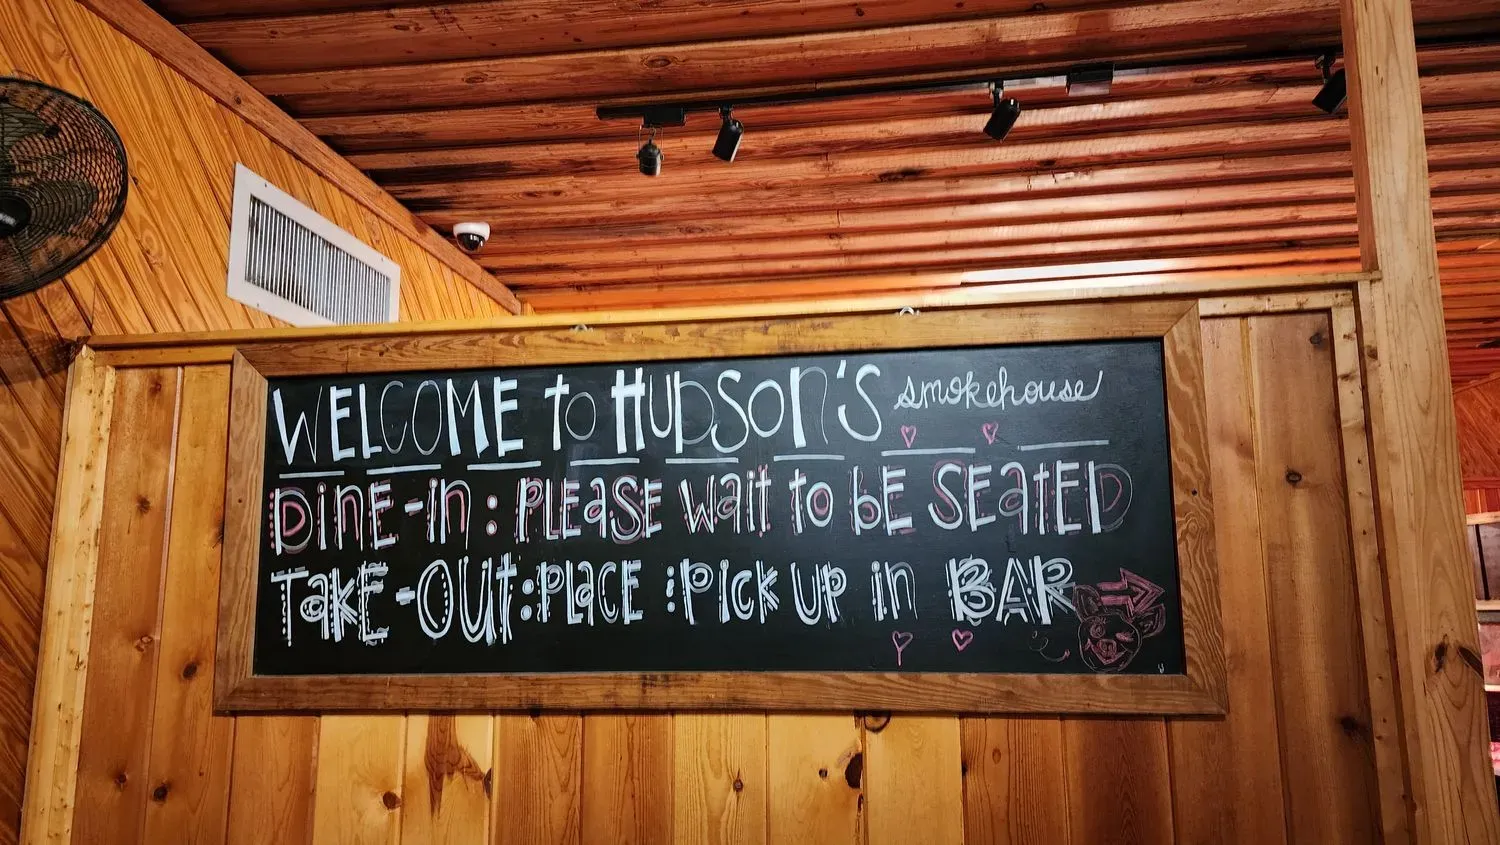 WELCOME to HUDSON'S smokehouse
DiNE-in: PLEASE WAit to bE SEatED
TakE-OUt: PLACE : PiCk UP in BAR